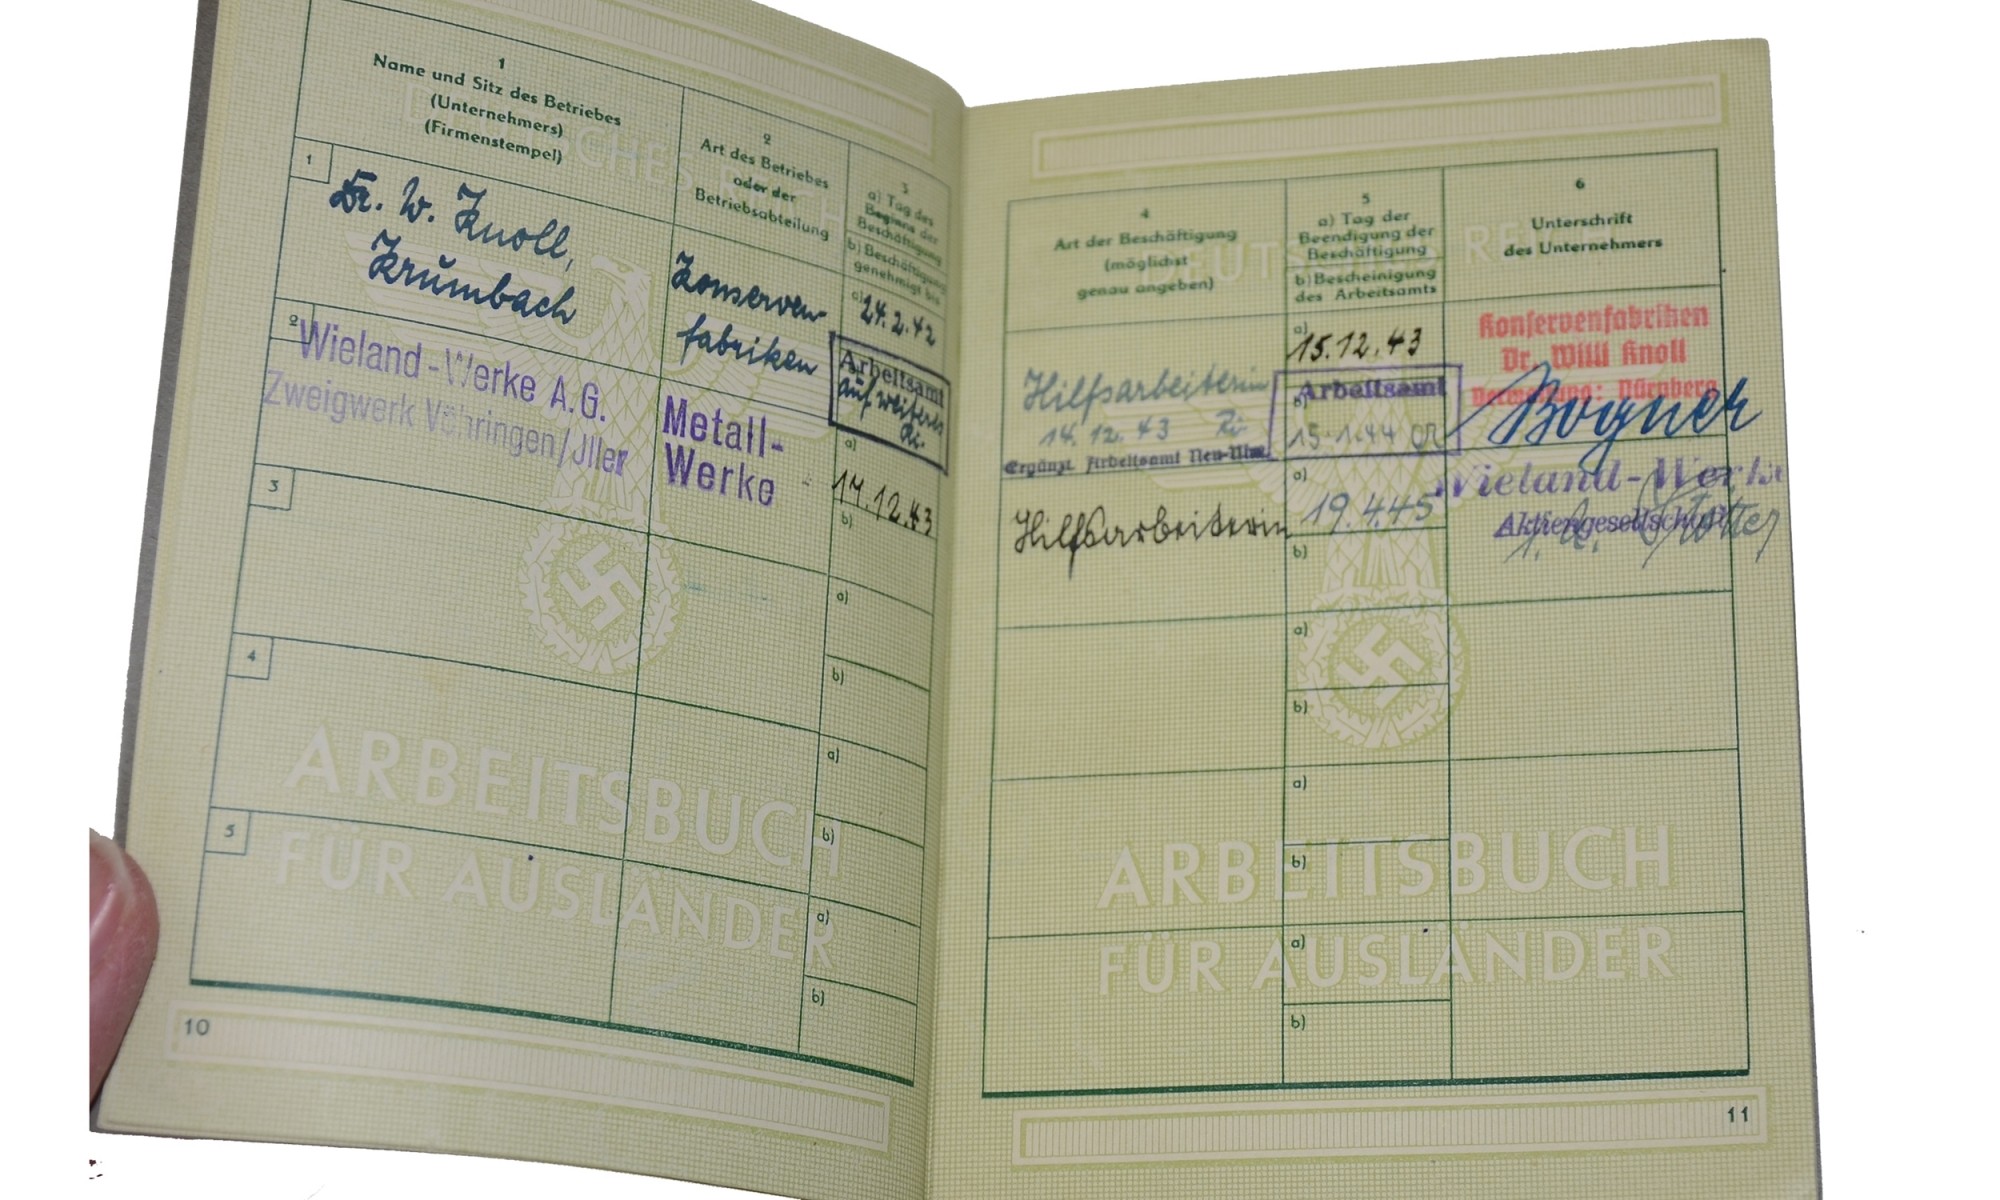 1
Name und Sitz des Betriebes
(Unternehmers)
(Firmenstempel)
2
Art des Betriebes
oder der
Betriebsabteilung
3
a) Tag des
Beginns der
Beschäftigung
b) Beschäftigung
genehmigt bis
1
Dr. W. Knoll,
Krumbach
Konserven-
fabriken
a) 24.2.42
Arbeitsamt
auf weiteres
2
Wieland-Werke A.G.
Zweigwerk Vöhringen/Jller
Metall-
Werke
a)
14.12.43
b)
3
a)
b)
4
a)
b)
5
a)
b)
DEUTSCHES REICH
ARBEITSBUCH
FÜR AUSLÄNDER
10
4
Art der Beschäftigung
(möglichst
genau angeben)
5
a) Tag der
Beendigung der
Beschäftigung
b) Bescheinigung
des Arbeitsamts
6
Unterschrift
des Unternehmers
Hilfsarbeiterin
14. 12. 43
Ergänzt Arbeitsamt Neu-Ulm
a)
15.12.43
Arbeitsamt
b)
15.1.44
Konservenfabriken
Dr. Willi Knoll
Verwaltung: Nürnberg
Bogner
Hilfsarbeiterin
a)
19.4.45
b)
Wieland-Werke
Aktiengesellschaft
a)
b)
a)
b)
a)
b)
DEUTSCHES REICH
ARBEITSBUCH
FÜR AUSLÄNDER
11